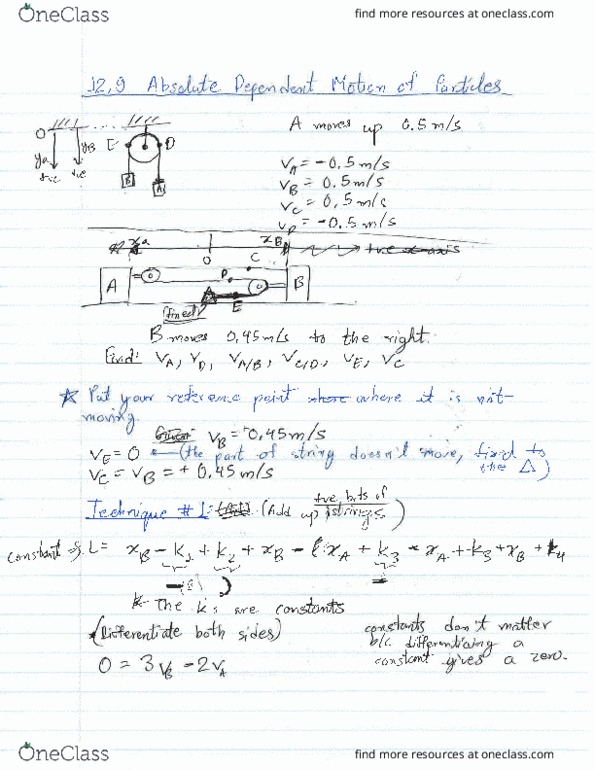 OneClass
find more resources at oneclass.com
12.9 Absolute Dependent Motion of Particles
A moves up 0.5 m/s
O
ya
yB
+ve
+ve
D
B
A
VA = -0.5 m/s
VB = 0.5 m/s
VC = 0.5 m/s
VD = -0.5 m/s
xa
xB
+ve x-axis
O
C
A
D
B
(fixed)
E
B moves 0.45 m/s to the right.
Find: VA, VD, VA/B, VC/D, VE, VC
* Put your reference point where it is not-
moving
VB = 0.45 m/s
VE = 0 ← (the part of string doesn't move, fixed to
the △)
VC = VB = + 0.45 m/s
Technique # 1: (Add up +ve bits of
strings)
constant L = xB - k1 + k2 + xB - xA + k3 - xA + k3 + xB + k4
The k's are constants
(Differentiate both sides)
0 = 3VB - 2VA
constants don't matter
b/c differentiating a
constant gives a zero.
OneClass
find more resources at oneclass.com